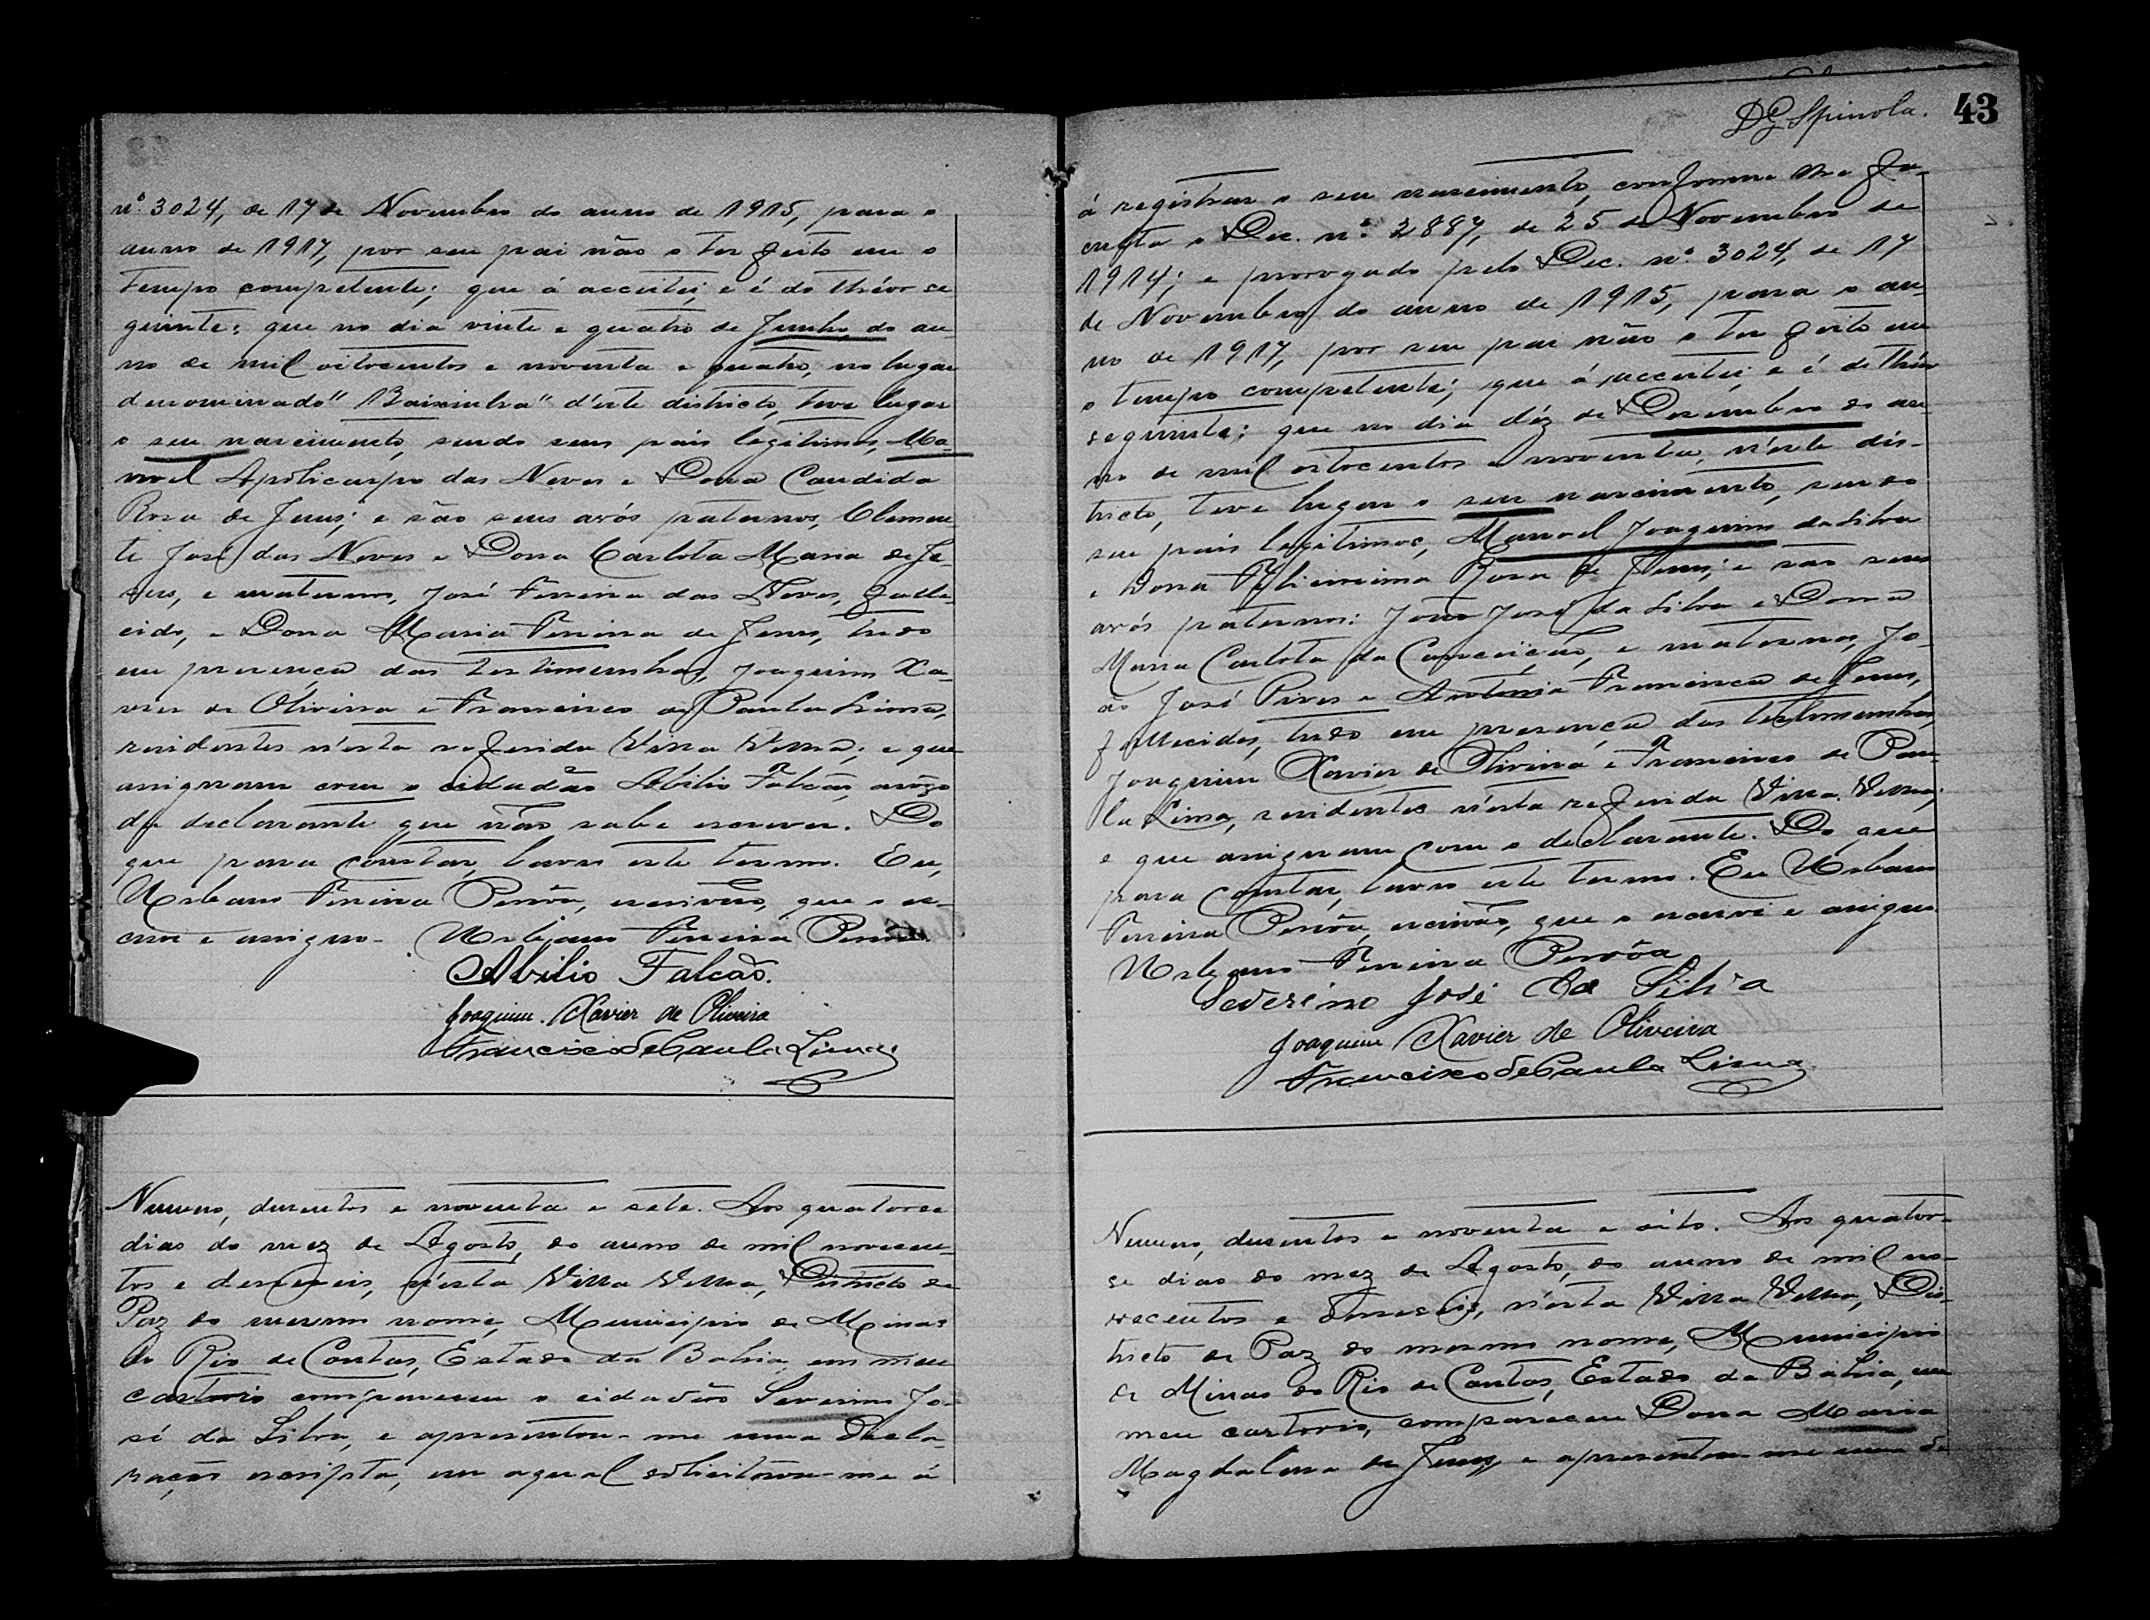 nº 3024, de 17 de Novembro do anno de 1915, para o
anno de 1917, por seu pai não o ter feito em o
tempo competente; que á acceitei, e é do théor se
guinte: que no dia vinte e quatro de Junho, do an-
no de mil oitocentos e noventa e quatro, no lugar
denominado "Baixinha" d'este districto, teve lugar
o seu nascimento, sendo seus pais legitimos, Ma-
noel Apolicarpo das Neves e Dona Candida
Rosa de Jesus; e são seus avós paternos, Clemen-
te José das Neves e Dona Carlota Maria de Je-
sus, e maternos, José Pereira das Neves, falle-
cido, e Dona Maria Pereira de Jesus, tudo
em presença das testimunhas, Joaquim Xa-
vier de Oliveira e Francisco de Paula Lima,
residentes n'esta referida Villa Velha; e que
assignam com o cidadão Abilio Falcão, arôgo
da declarante que não sabe escrever. Do
que para constar, lavro este termo. Eu,
Urbano Pereira Pessôa, escrivão, que o es-
crevi e assigno. Urbano Pereira Pessôa
Abilio Falcão.
Joaquim Xavier de Oliveira
Francisco de Paula Lima
Numero, dusentos e noventa e sete. Aos quatorse
dias do mez de Agosto, do anno de mil novecen-
tos e deseseis, n'esta Villa Velha, Districto de
Paz do mesmo nome, Municipio de Minas
do Rio de Contas, Estado da Bahia, em meu
cartorio compareceu o cidadão Severino Jo-
sé da Silva, e apresentou-me uma decla-
ração escripta, em a qual solicitava-me á
DG Spinola. 43
á registrar o seu nascimento, conforme me fa-
culta o Dec. nº 2887, de 25 de Novembro de
1914; e prorogado pelo Dec. nº 3024, de 17
de Novembro do anno de 1915, para o an-
no de 1917, por seu pai não o ter feito em
o tempo competente; que á acceitei, e é do théor
seguinte: que no dia déz de Desembro do an-
no de mil oitocentos e noventa, n'este dis-
tricto, teve lugar o seu nascimento, sendo
seus pais legitimos, Manoel Joaquim da Silva
e Dona Felisimina Rosa de Jesus; e são seus
avós paternos: João José da Silva e Dona
Maria Carlota da Conceição, e maternos, Jo-
ão José Pires e Antonia Francisca de Jesus,
fallecidos, tudo em presença das testimunhas,
Joaquim Xavier de Oliveira e Francisco de Pau-
la Lima, residentes n'esta referida Villa Velha;
e que assignam com o declarante. Do que
para constar, lavro este termo. Eu Urbano
Pereira Pessôa, escrivão, que o escrevi e assigno.
Urbano Pereira Pessôa
Severino José da Silva
Joaquim Xavier de Oliveira
Francisco de Paula Lima
Numero, dusentos e noventa e oito. Aos quator-
se dias do mez de Agosto, do anno de mil no-
vecentos e deseseis, n'esta Villa Velha, Dis-
tricto de Paz do mesmo nome, Municipio
de Minas do Rio de Contas, Estado da Bahia, em
meu cartorio, compareceu Dona Maria
Magdalena de Jesus, e apresentou-me uma de